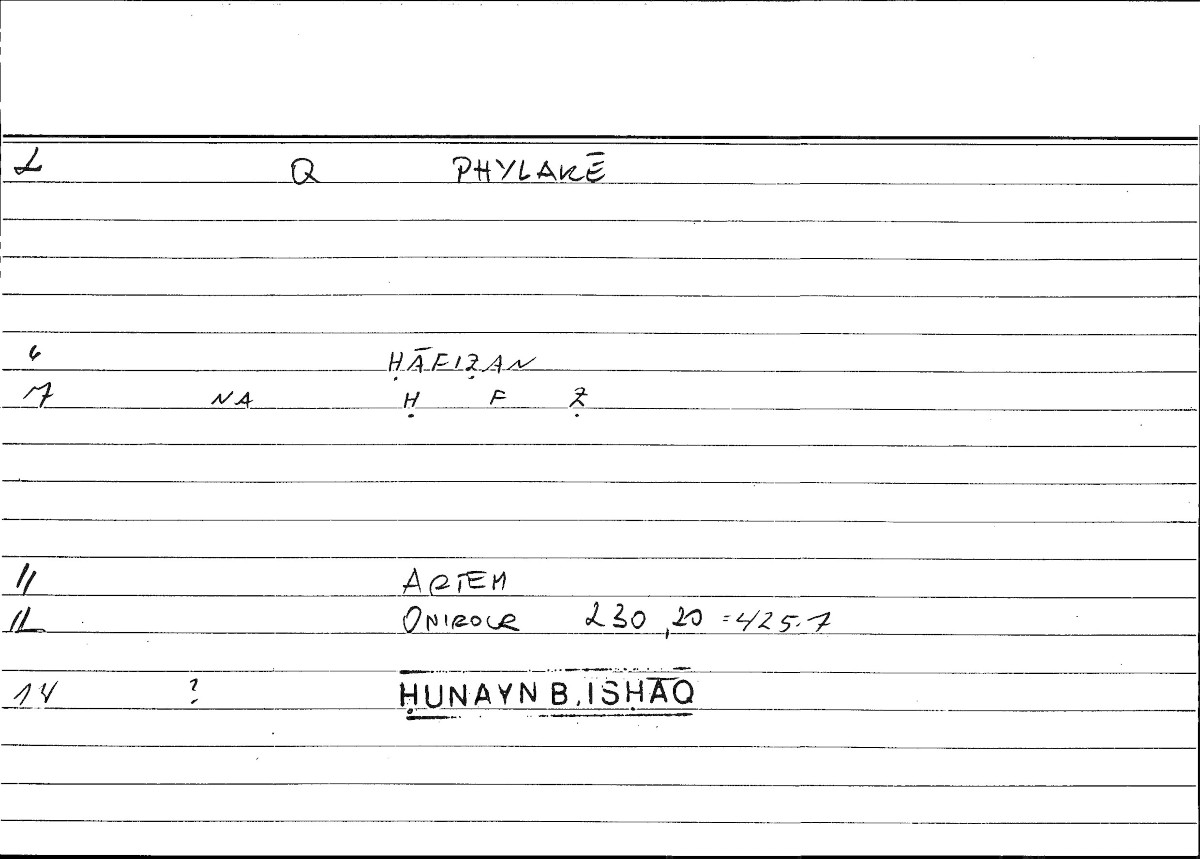 2 Q PHYLAKĒ
6 ḤĀFIẒAN
7 NA Ḥ F Ẓ
11 ARTEM
12 ONIROCR 230,20 =425.7
14 ? ḤUNAYN B. ISḤĀQ